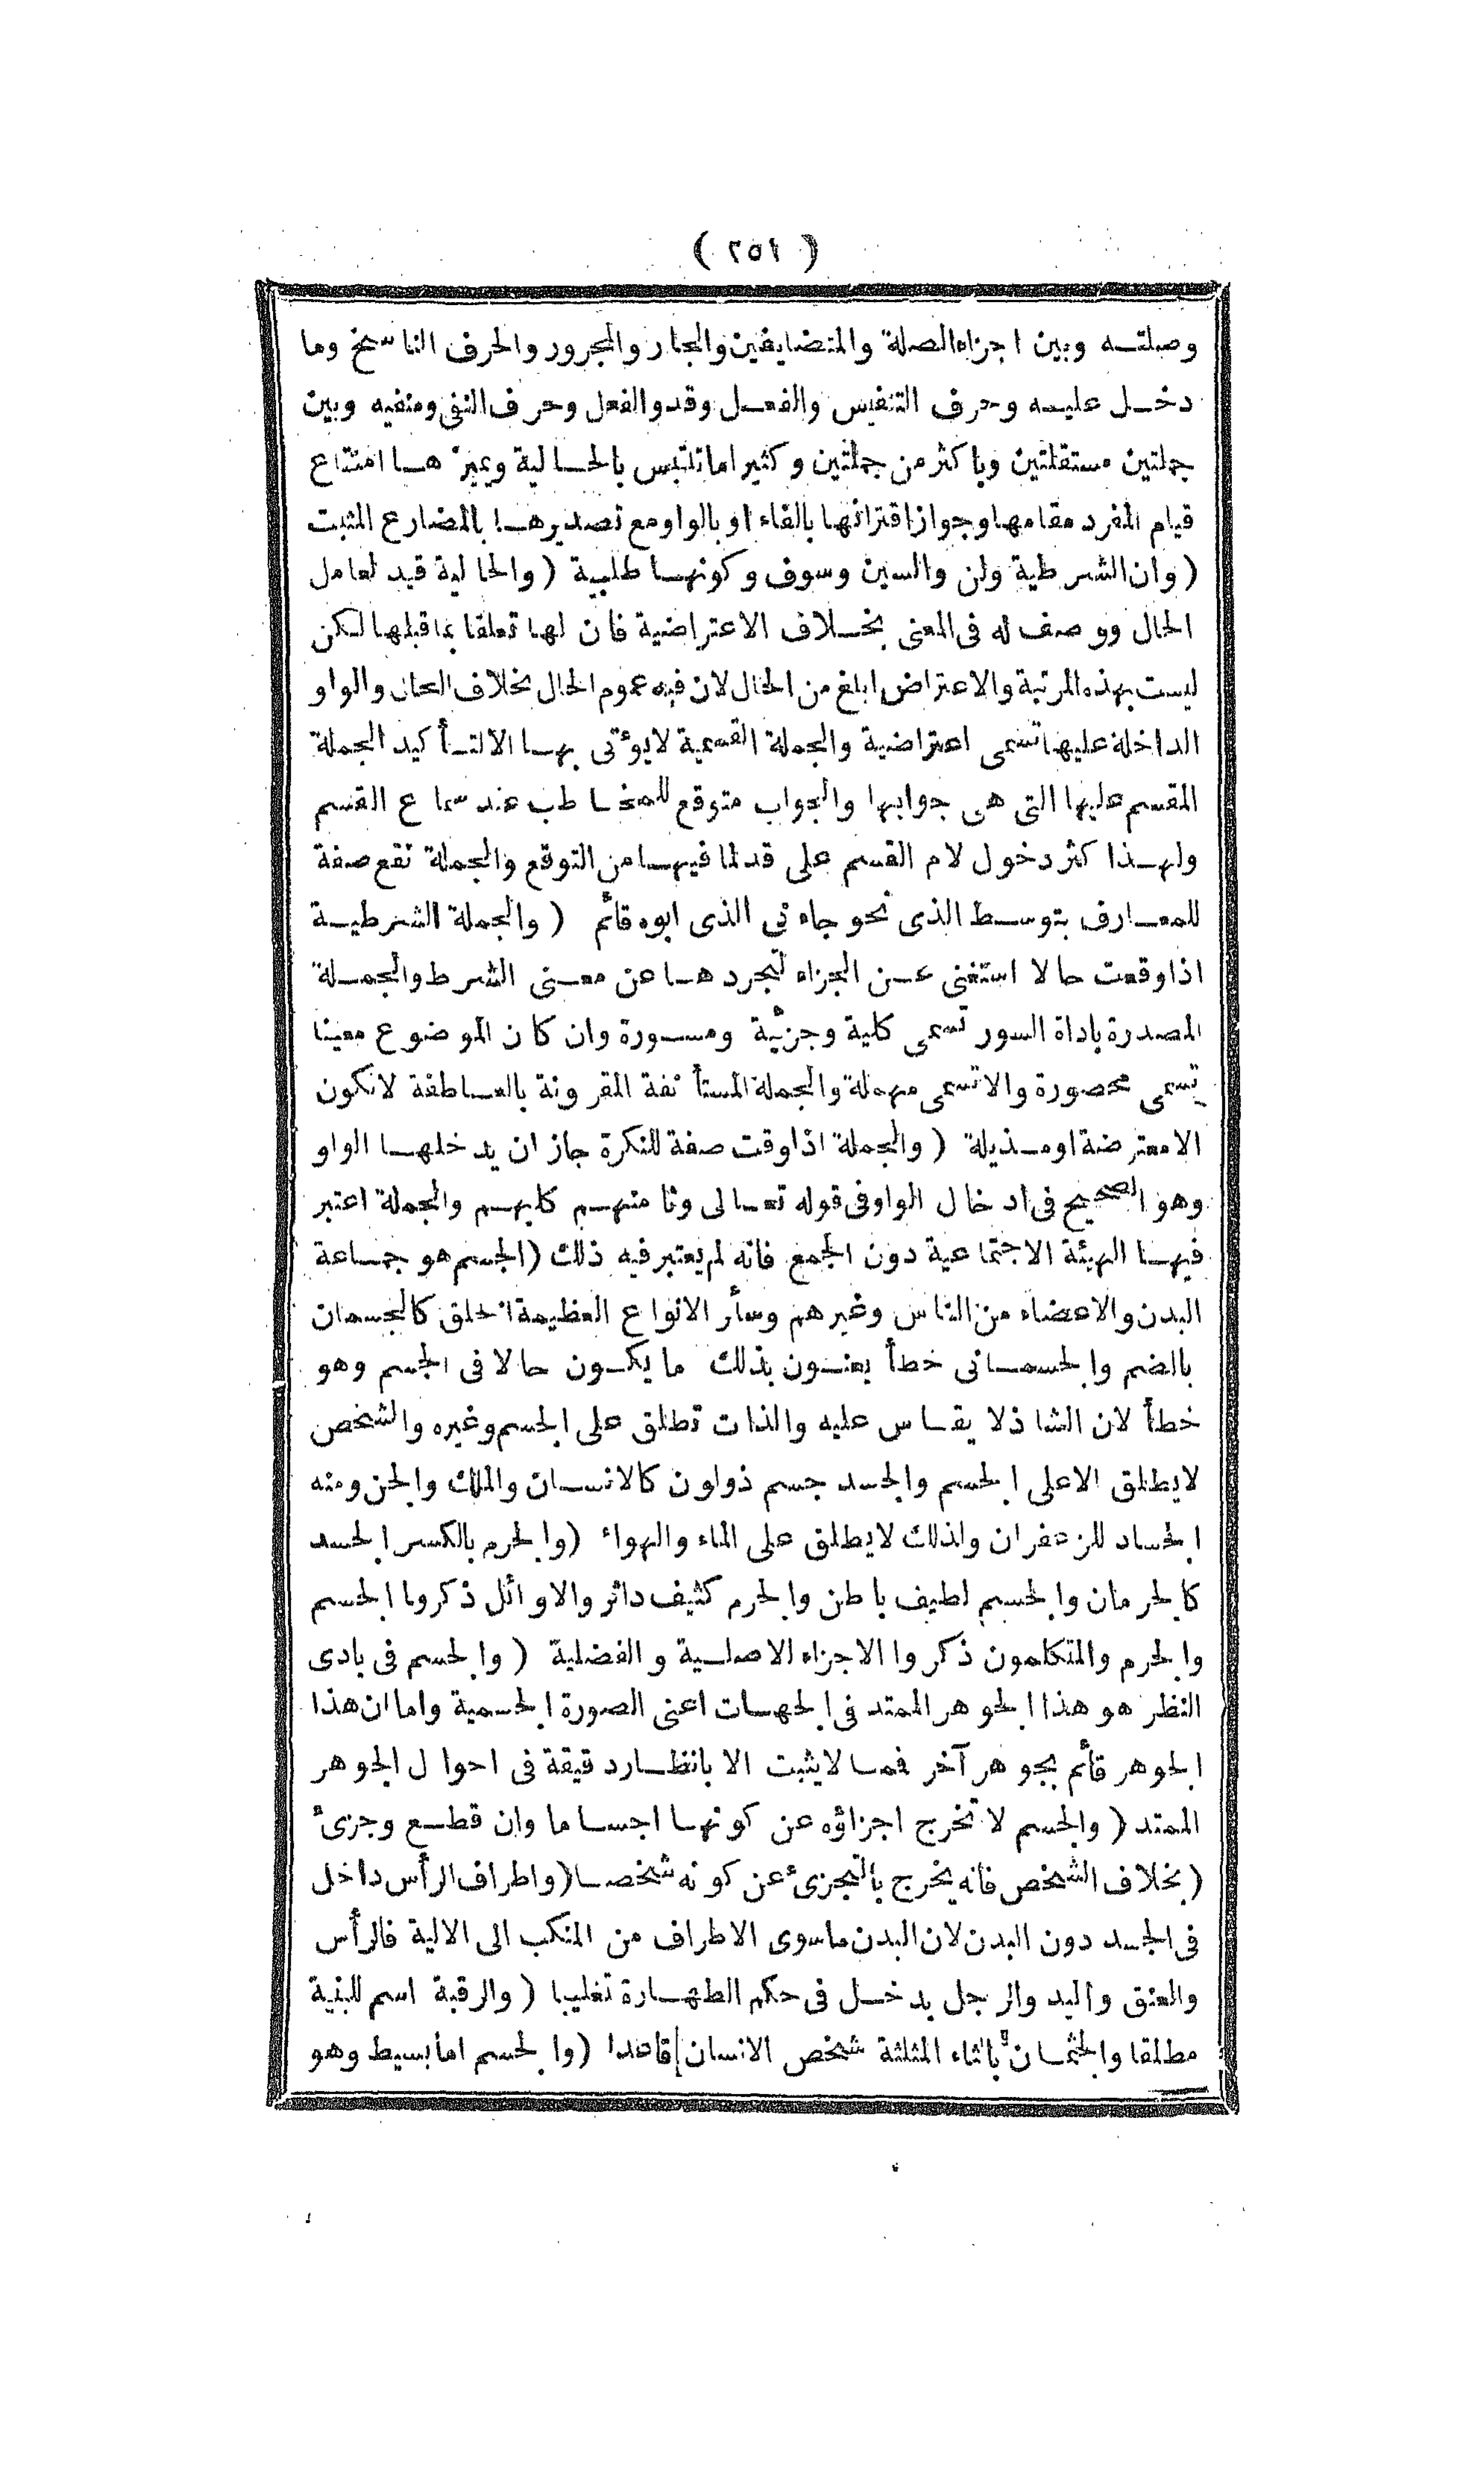 ( ٢٥١ )
وصلتـه وبين اجزاء الصلة والمتضايفين والجار والمجرور والحرف الناسخ وما
دخـل عليـه وحرف التنفيس والفعـل وقد والفعل وحرف النفى ومنفيه وبين
جملتين مستقلتين وباكثر من جملتين وكثيرا ماتلتبس بالحـالية ويميزهـا امتناع
قيام المفرد مقامها وجواز اقترانها بالفاء او بالواو مع تصديرهـا بالمضارع المثبت
( وان الشرطية ولن والسين وسوف وكونهـا طلبية ( والحالية قيد لعامل
الحال ووصف له فى المعنى بخـلاف الاعتراضية فان لها تعلقا بما قبلها لكن
ليست بهذه المرتبة والاعتراض ابلغ من الحال لان فيه عموم الحال بخلاف الحال والواو
الداخلة عليها تسمى اعتراضية والجملة القسمية لايؤتى بهـا الا لتـأكيد الجملة
المقسم عليها التى هى جوابها والجواب متوقع للمخـاطب عند سماع القسم
ولهـذا كثر دخول لام القسم على قد لما فيهـا من التوقع والجملة تقع صفة
للمعـارف بتوسـط الذى نحو جاءنى الذى ابوه قائم ( والجملة الشرطيـة
اذا وقعت حالا استغنى عـن الجزاء لتجردهـا عن معـنى الشرط والجمـلة
المصدرة باداة السور تسمى كلية وجزئية ومسـورة وان كان الموضوع معينا
تسمى محصورة والا تسمى مهملة والجملة المستأنفة المقرونة بالعـاطفة لاتكون
الامعترضة اومـذيلة ( والجملة اذا وقت صفة للنكرة جاز ان يدخلهـا الواو
وهو الصحيح فى ادخال الواو فى قوله تعـالى وثامنهـم كلبهـم والجملة اعتبر
فيهـا الهيئة الاجتماعية دون الجمع فانه لم يعتبر فيه ذلك ( الجسم هو جمـاعة
البدن والاعضاء من الناس وغيرهم وسائر الانواع العظيمة الخلق كالجسمان
بالضم والجسمـانى خطأ يعنـون بذلك مايكـون حالا فى الجسم وهو
خطأ لان الشاذ لا يقـاس عليه والذات تطلق على الجسم وغيره والشخص
لايطلق الاعلى الجسم والجسد جسم ذولون كالانسـان والملك والجن ومنه
الجساد للزعفران ولذلك لايطلق على الماء والهواء ( والجرم بالكسر الجسد
كالجرمان والجسم لطيف باطن والجرم كثيف دائر والاوائل ذكروا الجسم
والجرم والمتكلمون ذكروا الاجزاء الاصلـية والفضلية ( والجسم فى بادى
النظر هو هذا الجوهر الممتد فى الجهـات اعنى الصورة الجسمية واما ان هذا
الجوهر قائم بجوهر آخر فمـا لايثبت الا بانظـار دقيقة فى احوال الجوهر
الممتد ( والجسم لاتخرج اجزاؤه عن كونهـا اجسـاما وان قطـع وجزئ
( بخلاف الشخص فانه يخرج بالتجزئ عن كونه شخصـا ( واطراف الرأس داخل
فى الجسد دون البدن لان البدن ماسوى الاطراف من المنكب الى الالية فالرأس
والعنق واليد والرجل يدخـل فى حكم الطهـارة تغليبا ( والرقبة اسم للبنية
مطلقا والجثمـان بالثاء المثلثة شخص الانسان قاعدا ( والجسم اما بسيط وهو